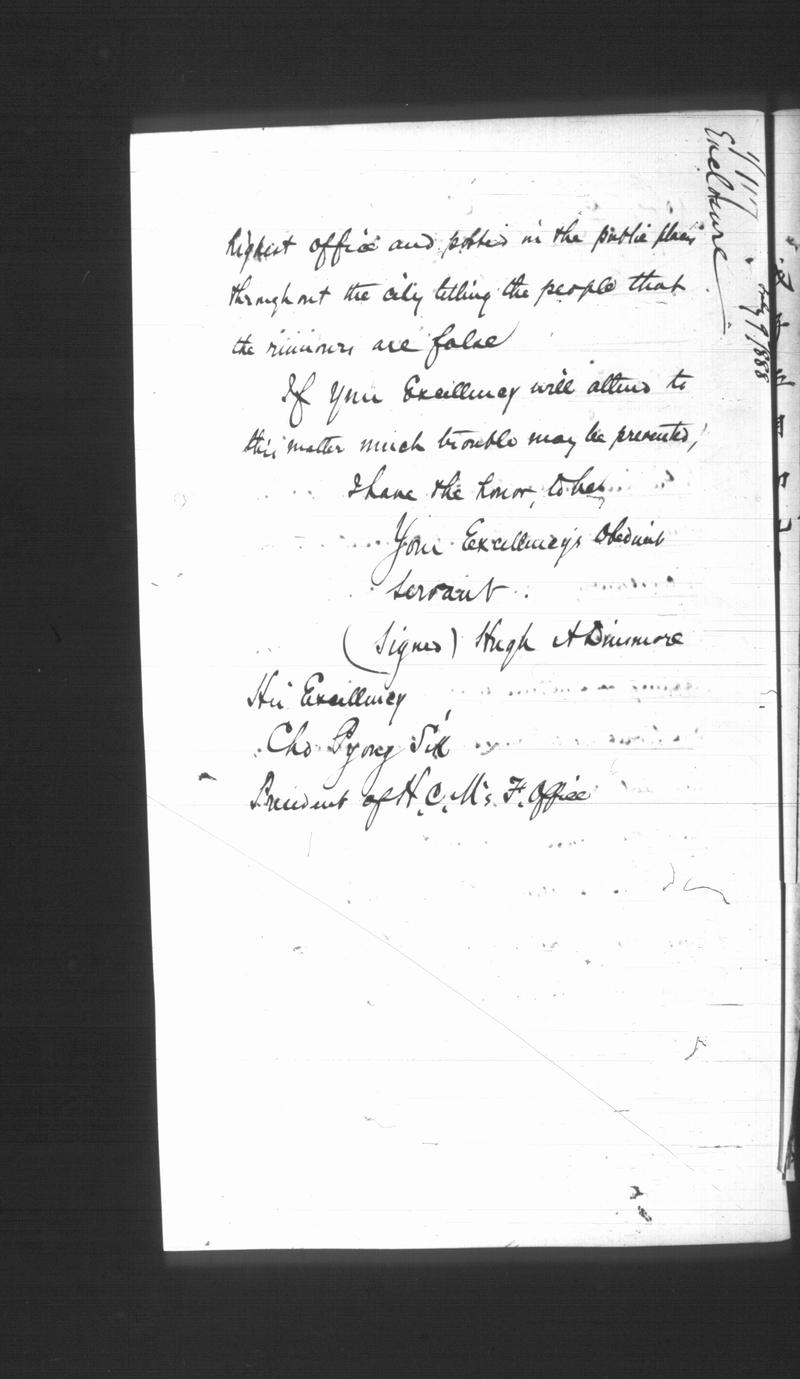 Enclosure 1/117
July 9/1888
highest office and posted in the public places
throughout the city telling the people that
the rumours are false
If Your Excellency will attend to
this matter much trouble may be prevented,
I have the honor, to be,
Your Excellency's Obedient
Servant.
(Signed) Hugh A Dinsmore
His Excellency
Cho Pyong Sik
President of H.C.M's F. Office